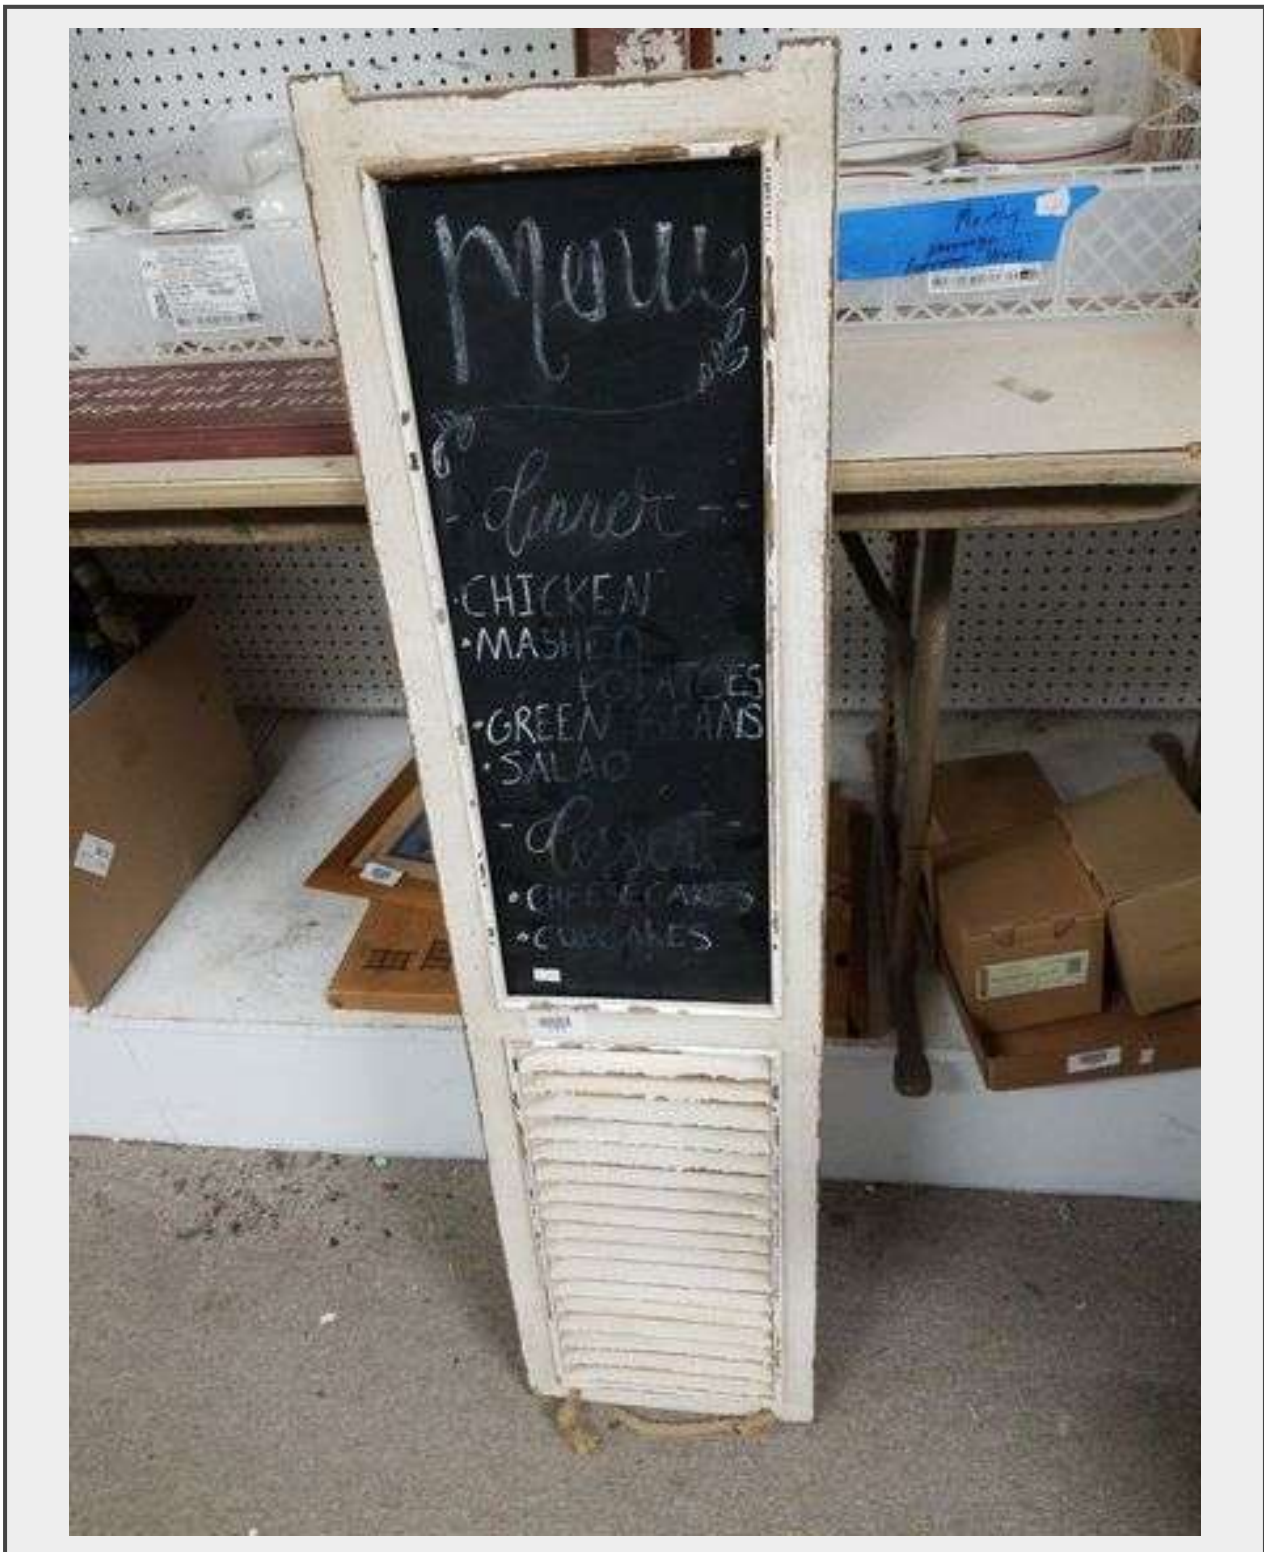 Menu
- dinner - -
·CHICKEN
·MASHED
POTATOES
·GREEN BEANS
·SALAD
- dessert -
·CHEESECAKES
·CUPCAKES